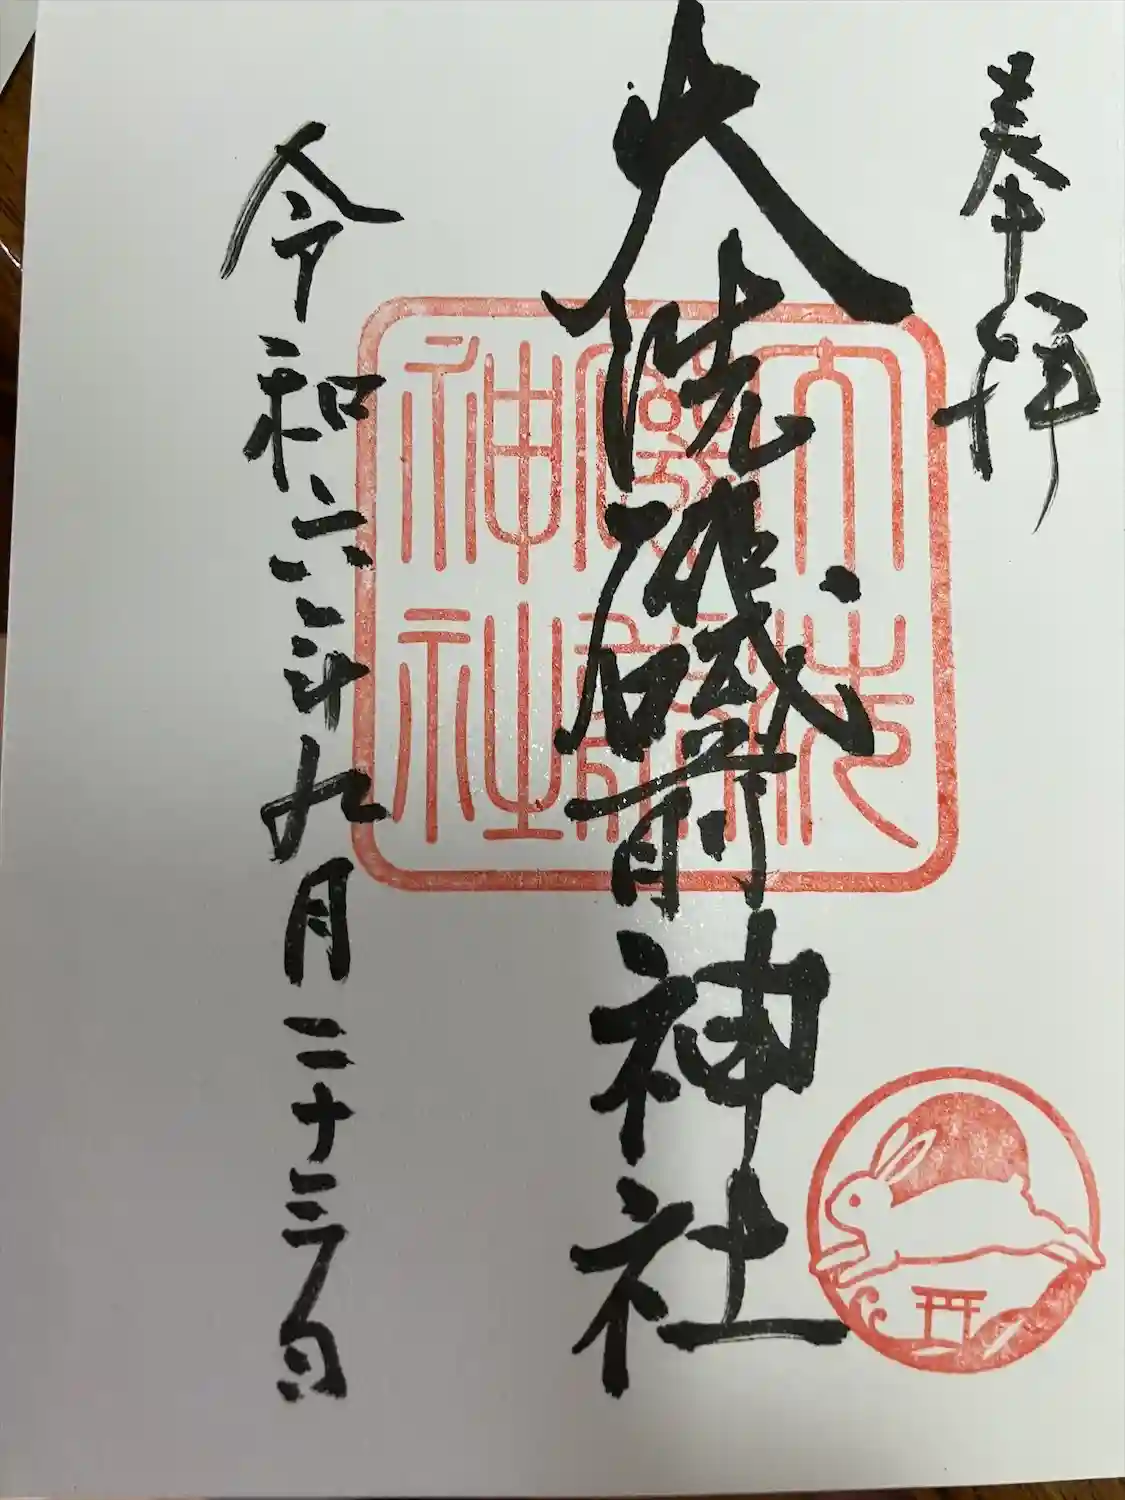 奉拝
大洗磯前神社
令和六年九月二十三日
大洗磯前神社